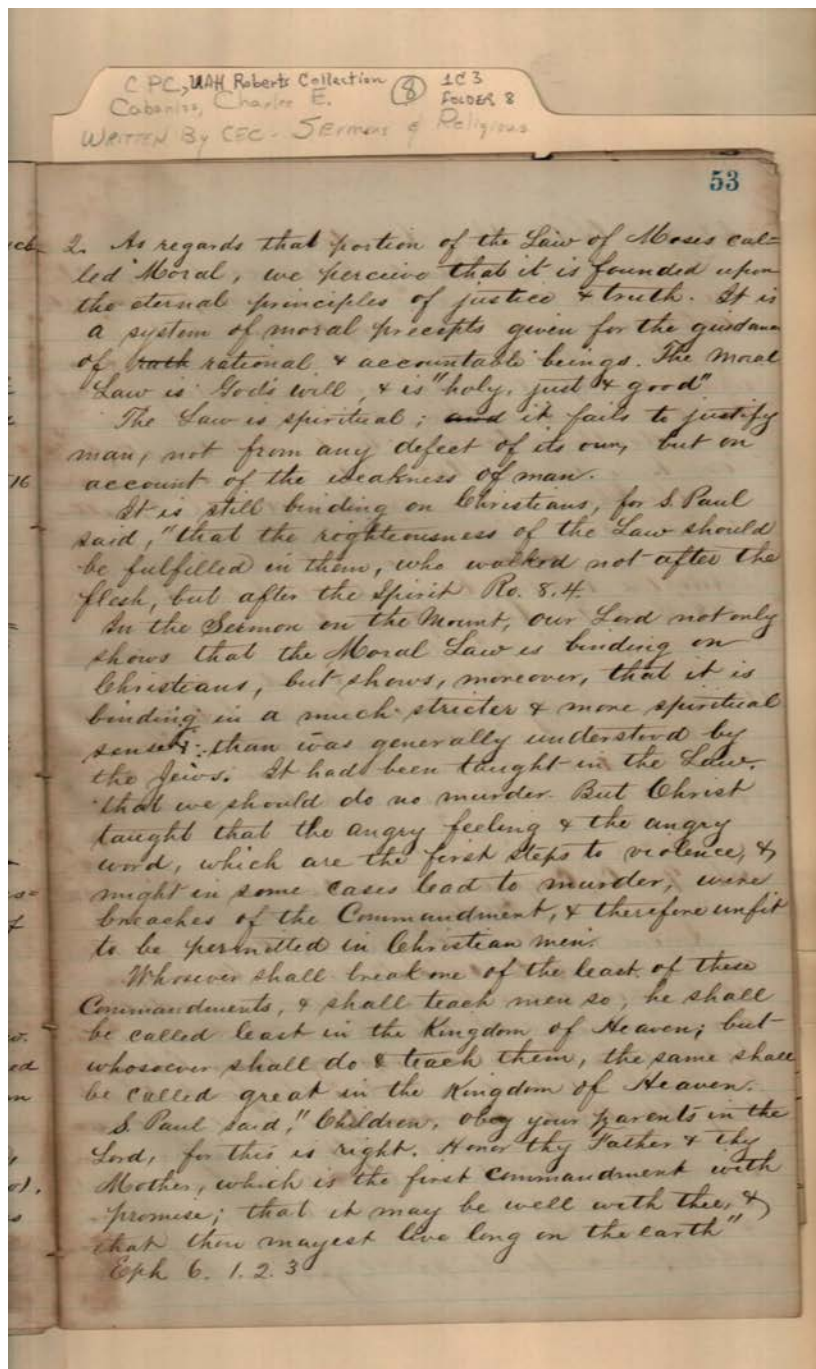 C PC, UAH Roberts Collection 8 1C3
Cabaniss, Charles E. FOLDER 8
WRITTEN By CEC - Sermons & Religious
53
2. As regards that portion of the Law of Moses cal=
led Moral, we perceive that it is founded upon
the eternal principles of justice & truth. It is
a system of moral precepts given for the guidance
of rath rational & accountable beings. The Moral
Law is God's will, & is "holy, just & good"
The Law is spiritual; and it fails to justify
man, not from any defect of its own, but on
account of the weakness of man.
16
It is still binding on Christians, for S. Paul
said, "that the righteousness of the Law should
be fulfilled in them, who walked not after the
flesh, but after the Spirit Ro. 8.4.
In the Sermon on the Mount, our Lord not only
shows that the Moral Law is binding on
Christians, but shows, moreover, that it is
binding in a much stricter & more spiritual
sense than was generally understood by
the Jews. It had been taught in the Law,
that we should do no murder. But Christ
taught that the angry feeling & the angry
word, which are the first steps to violence, &
might in some cases lead to murder, were
breaches of the Commandment, & therefore unfit
to be permitted in Christian men.
Whosever shall break one of the least of these
Commandments, & shall teach men so, he shall
be called least in the Kingdom of Heaven; but
whosoever shall do & teach them, the same shall
be called great in the Kingdom of Heaven.
S. Paul said, "Children, obey your parents in the
Lord, for this is right. Honor thy Father & thy
Mother, which is the first commandment with
promise; that it may be well with thee, &
that thou mayest live long on the earth"
Eph 6. 1. 2. 3